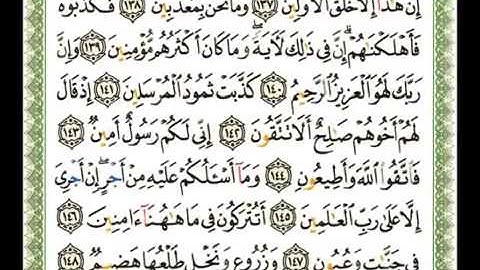 إِنْ هَٰذَآ إِلَّا خُلُقُ ٱلْأَوَّلِينَ ١٣٧ وَمَا نَحْنُ بِمُعَذَّبِينَ ١٣٨ فَكَذَّبُوهُ
فَأَهْلَكْنَٰهُمْ ۗ إِنَّ فِى ذَٰلِكَ لَءَايَةً ۖ وَمَا كَانَ أَكْثَرُهُم مُّؤْمِنِينَ ١٣٩ وَإِنَّ
رَبَّكَ لَهُوَ ٱلْعَزِيزُ ٱلرَّحِيمُ ١٤٠ كَذَّبَتْ ثَمُودُ ٱلْمُرْسَلِينَ ١٤١ إِذْ قَالَ
لَهُمْ أَخُوهُمْ صَٰلِحٌ أَلَا تَتَّقُونَ ١٤٢ إِنِّى لَكُمْ رَسُولٌ أَمِينٌ ١٤٣
فَٱتَّقُوا۟ ٱللَّهَ وَأَطِيعُونِ ١٤٤ وَمَآ أَسْـَٔلُكُمْ عَلَيْهِ مِنْ أَجْرٍ ۖ إِنْ أَجْرِىَ
إِلَّا عَلَىٰ رَبِّ ٱلْعَٰلَمِينَ ١٤٥ أَتُتْرَكُونَ فِى مَا هَٰهُنَآ ءَامِنِينَ ١٤٦
فِى جَنَّٰتٍ وَعُيُونٍ ١٤٧ وَزُرُوعٍ وَنَخْلٍ طَلْعُهَا هَضِيمٌ ١٤٨